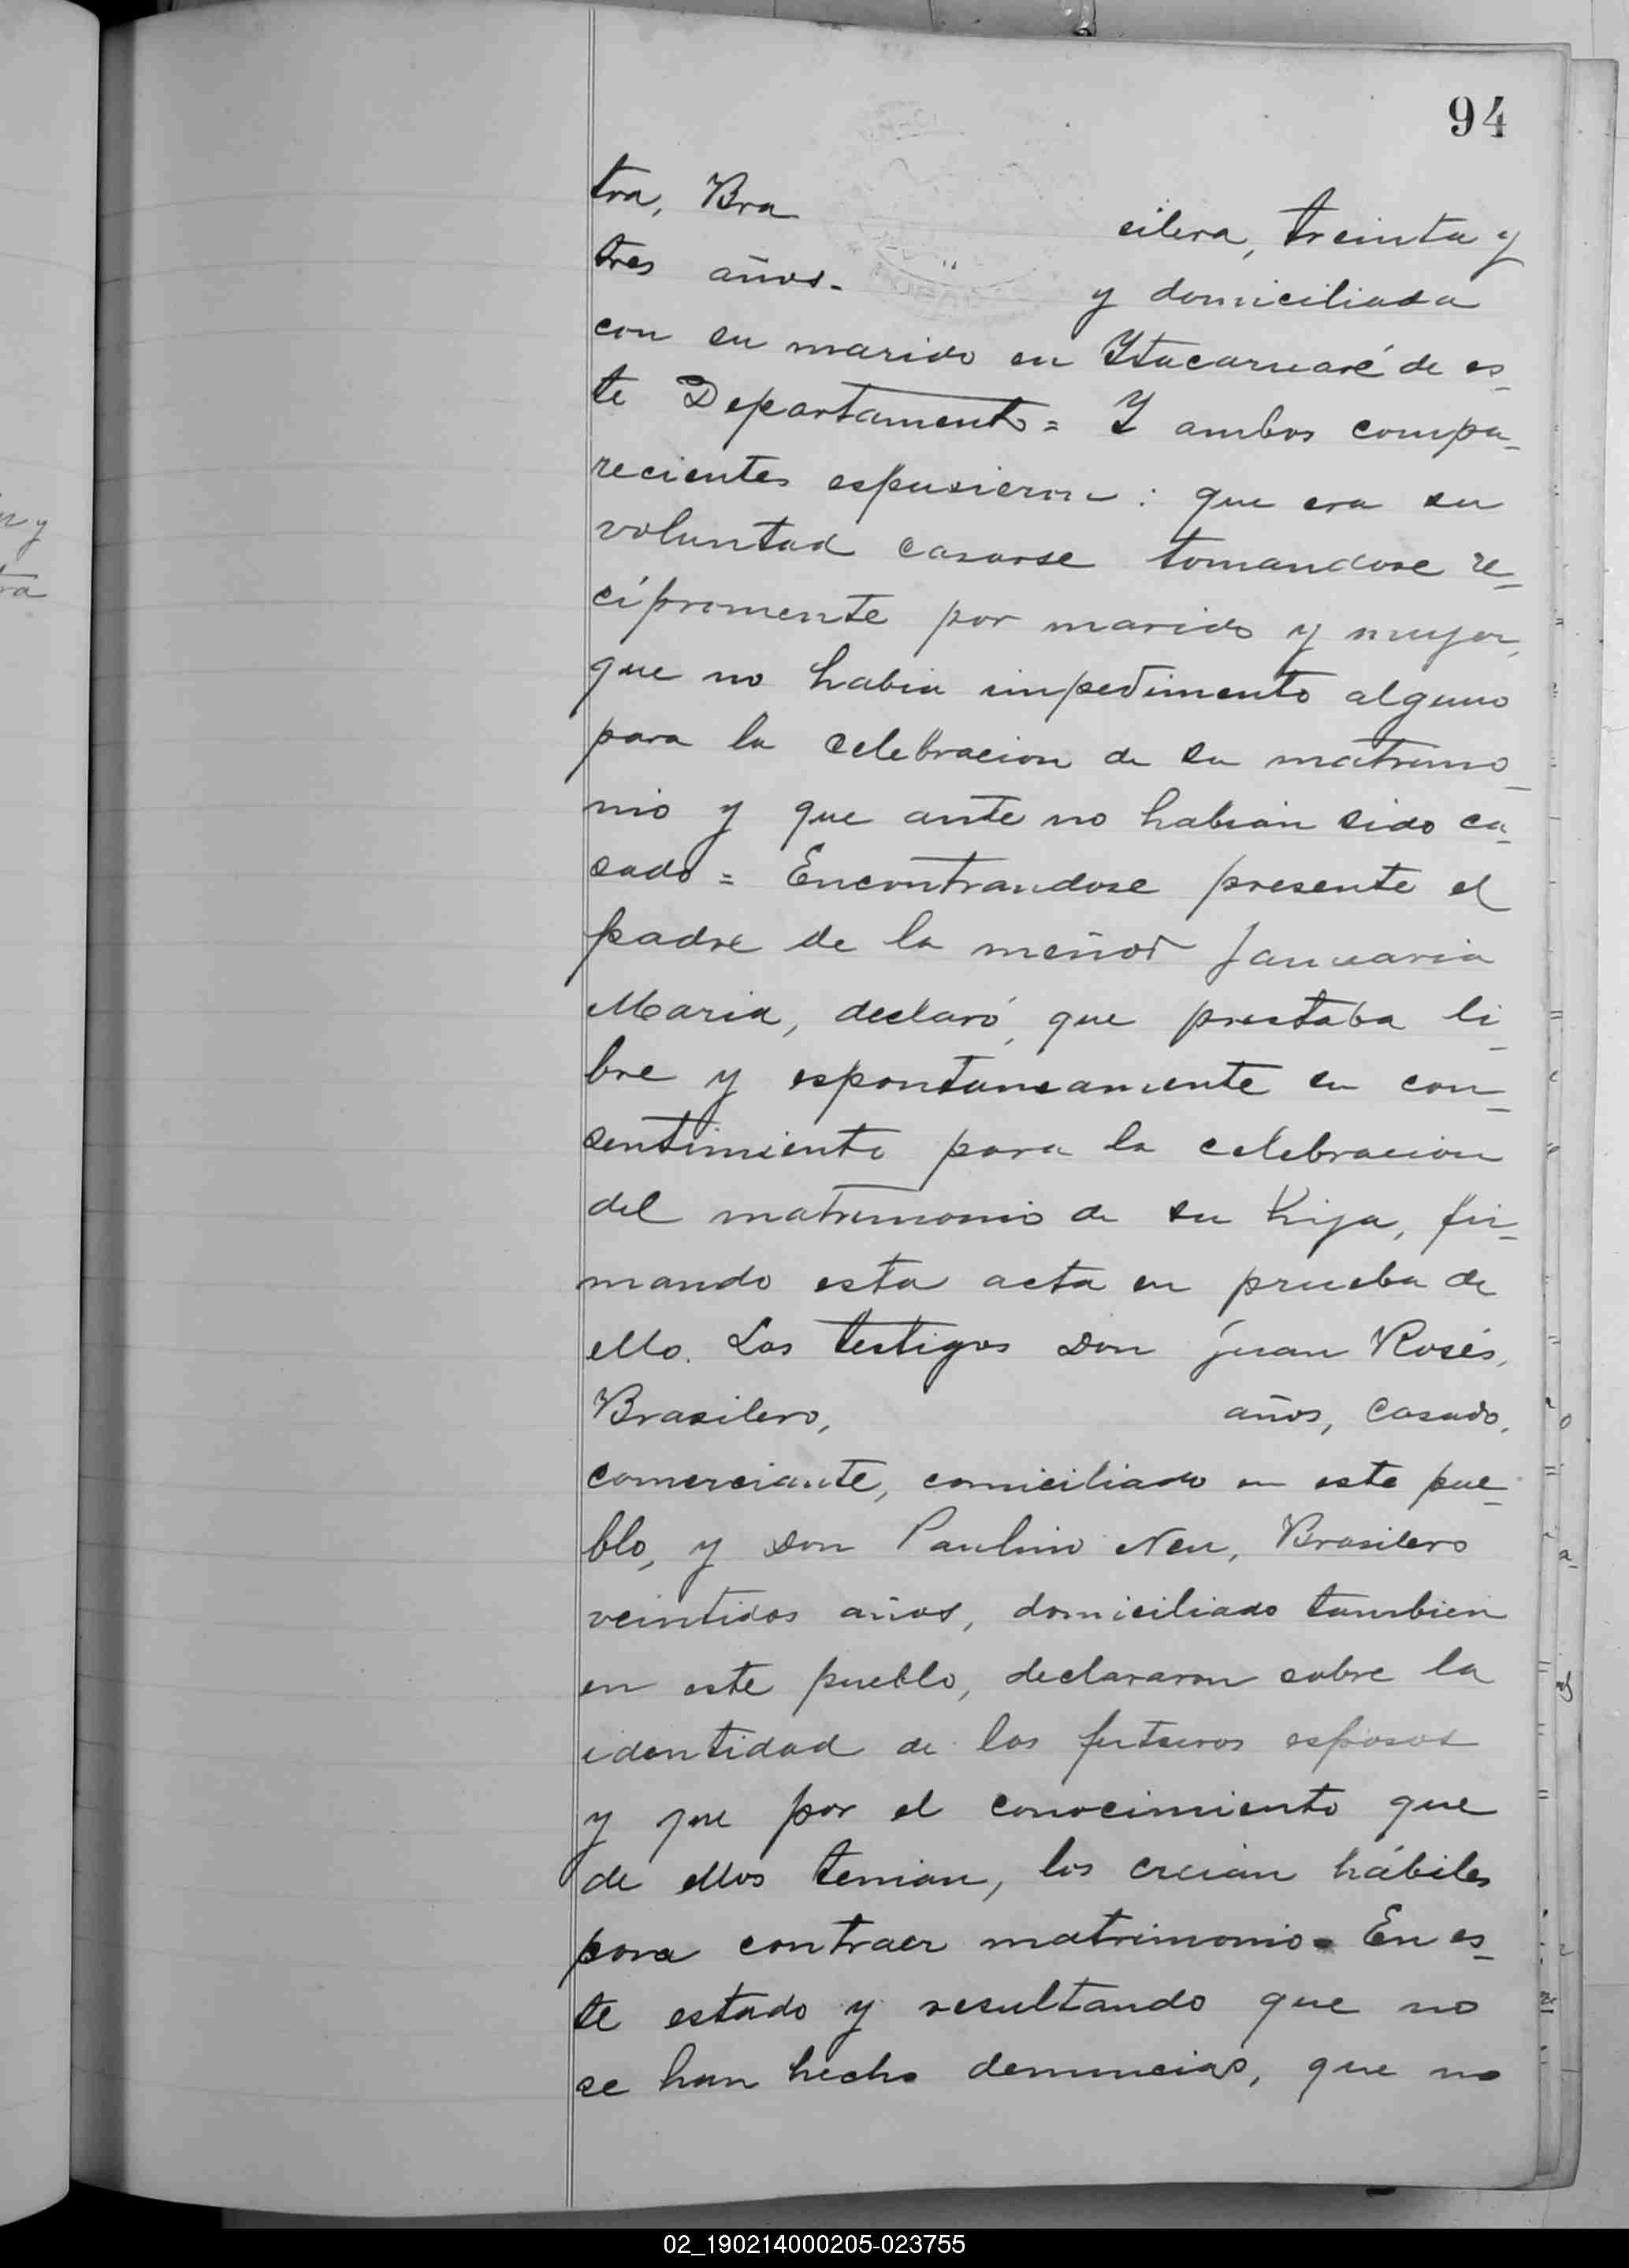 94
tra, Bra cilera, treinta y
tres años. y domiciliada
con su marido en Ytacaruaré de es-
te Departamento = Y ambos compa-
recientes espusieron : que era su
voluntad casarse tomandose re-
cípromente por marido y mujer,
que no habia impedimento alguno
para la celebracion de su matrimo-
nio y que ante no habian sido ca-
sado = Encontrandose presente el
padre de la menor Januaria
Maria, declaró, que prestaba li-
bre y espontaneamente su con-
sentimiento para la celebracion
del matrimonio de su hija, fir-
mando esta acta en prueba de
ello. Los testigos Don Juan Rosés,
Brasilero, años, casado,
comerciante, domiciliado en este pue-
blo, y Don Paulino Neu, Brasilero
veintidos años, domiciliado tambien
en este pueblo, declararon sobre la
identidad de los futuros esposos
y que por el conocimiento que
de ellos tenian, los creian hábiles
para contraer matrimonio = En es-
te estado y resultando que no
se han hecho denuncias, que no
02_190214000205-023755